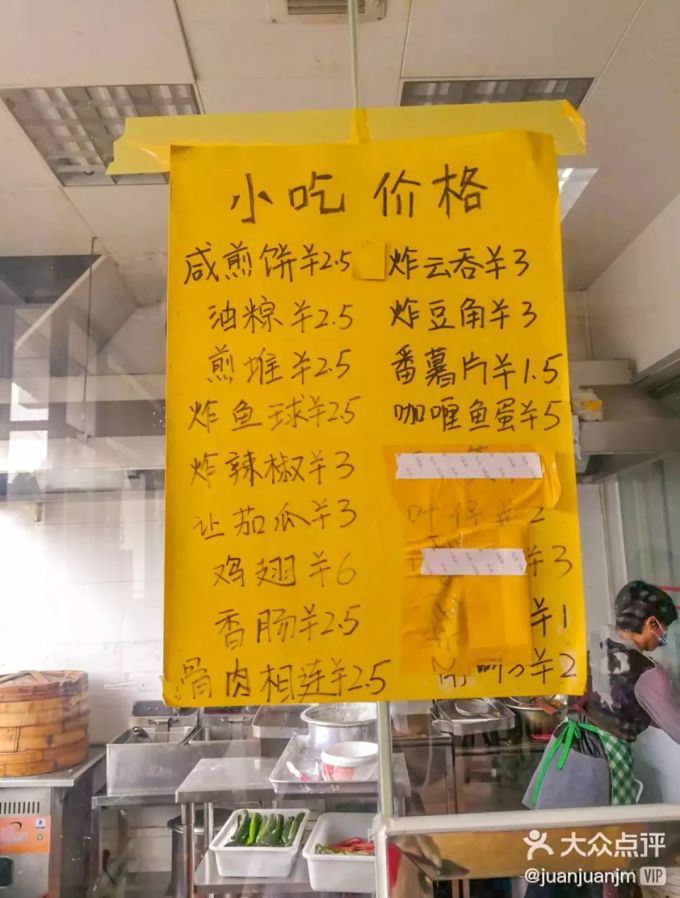 小吃价格
咸煎饼¥2.5
油粽¥2.5
煎堆¥2.5
炸鱼球¥2.5
炸辣椒¥3
让茄瓜¥3
鸡翅¥6
香肠¥2.5
骨肉相连¥2.5
炸云吞¥3
炸豆角¥3
番薯片¥1.5
咖喱鱼蛋¥5
¥2
¥3
¥1
¥2
大众点评
@juanjuanjm VIP